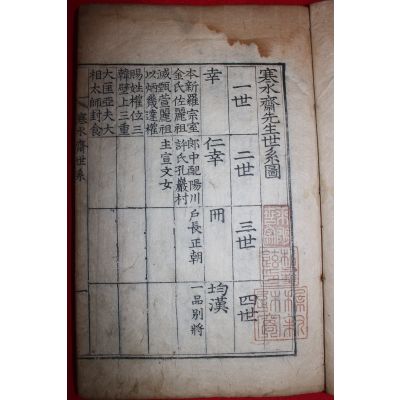 寒水齋先生世系圖
一世 二世 三世 四世
幸 仁幸 冊 均漢
本新羅宗室
金氏佐麗祖
滅甄萱麗祖
以炳幾達權
賜姓權位三
韓壁上三重
大匡亞夫大
相太師封食
郎中配陽川
許氏孔巖村
主宣文女
戶長正朝
一品別將
寒水齋世系
一